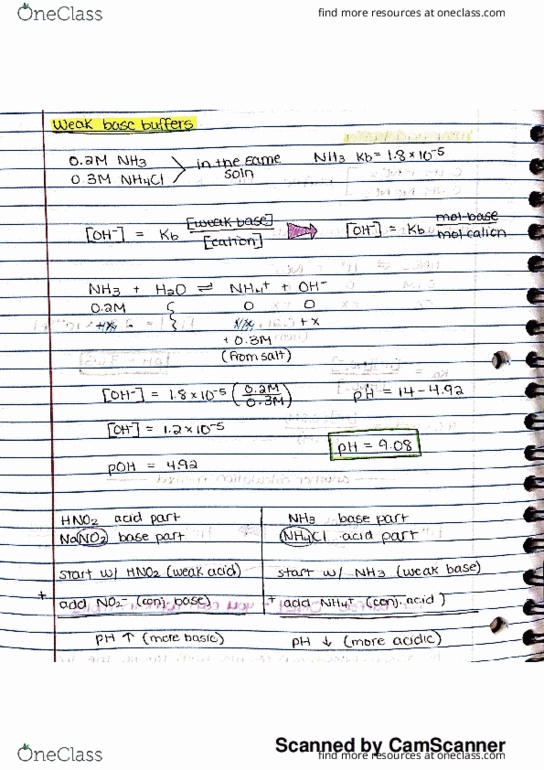 OneClass find more resources at oneclass.com
Weak base buffers
0.2M NH3 in the same NH3 Kb = 1.8 x 10-5
0.3M NH4Cl soln
[OH-] = Kb [weak base]/[cation] [OH-] = Kb mol base/mol cation
NH3 + H2O ⇌ NH4+ + OH-
0.2M 0 0
+x
+ 0.3M
(from salt)
[OH-] = 1.8 x 10-5 (0.2M/0.3M) pH = 14 - 4.92
[OH-] = 1.2 x 10-5
pH = 9.08
pOH = 4.92
HNO2 acid part NH3 base part
NaNO2 base part NH4Cl acid part
start w/ HNO2 (weak acid) start w/ NH3 (weak base)
+ add NO2- (conj. base) + add NH4+ (conj. acid)
pH ↑ (more basic) pH ↓ (more acidic)
Scanned by CamScanner
OneClass find more resources at oneclass.com